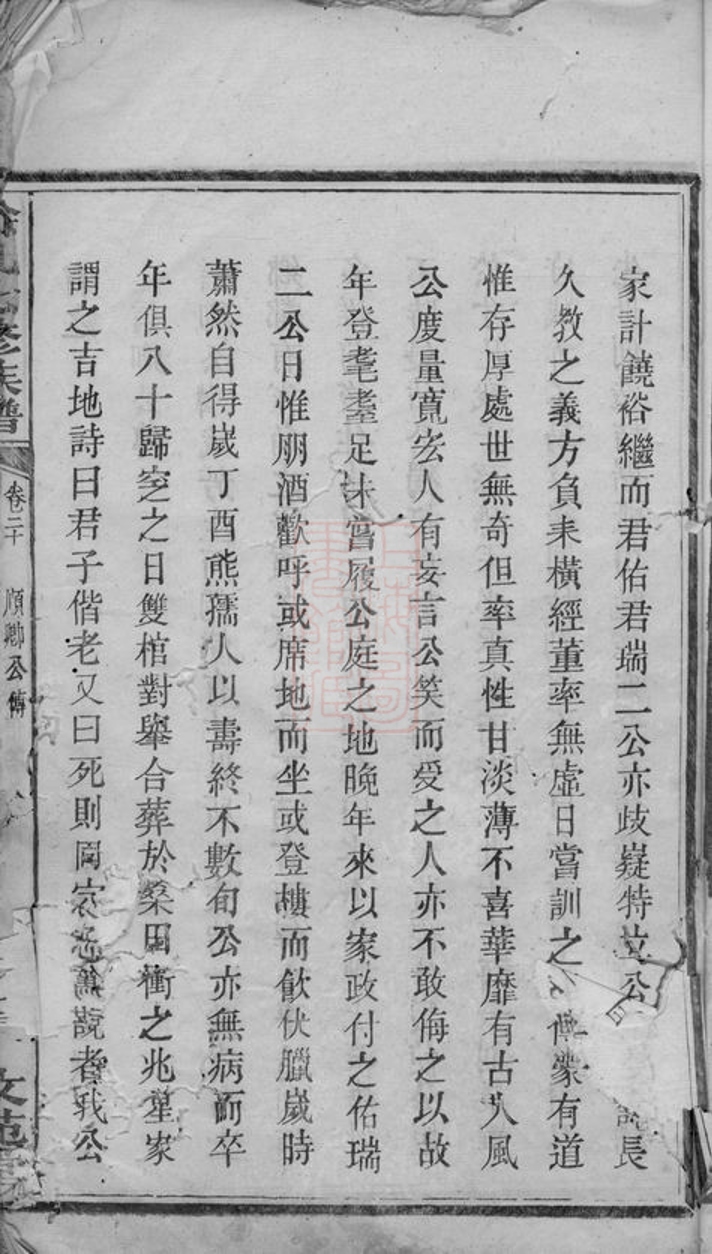 家計饒裕繼而君佑君瑞二公亦歧嶷特立公長
久教之義方負耒橫經董率無虛日當訓之家有道
惟存厚處世無奇但率真性甘淡薄不喜華靡有古人風
公度量寬宏人有妄言公笑而受之人亦不敢侮之以故
年登耄耋足未嘗履公庭之地晚年來以家政付之佑瑞
二公日惟朋酒歡呼或席地而坐或登樓而飲伏臘歲時
蕭然自得歲丁酉熊孺人以壽終不數旬公亦無病而卒
年俱八十歸窆之日雙棺對舉合葬於桑田衝之兆堂家
謂之吉地詩曰君子偕老又曰死則同穴者我公
修族譜
卷二十
順卿公傳